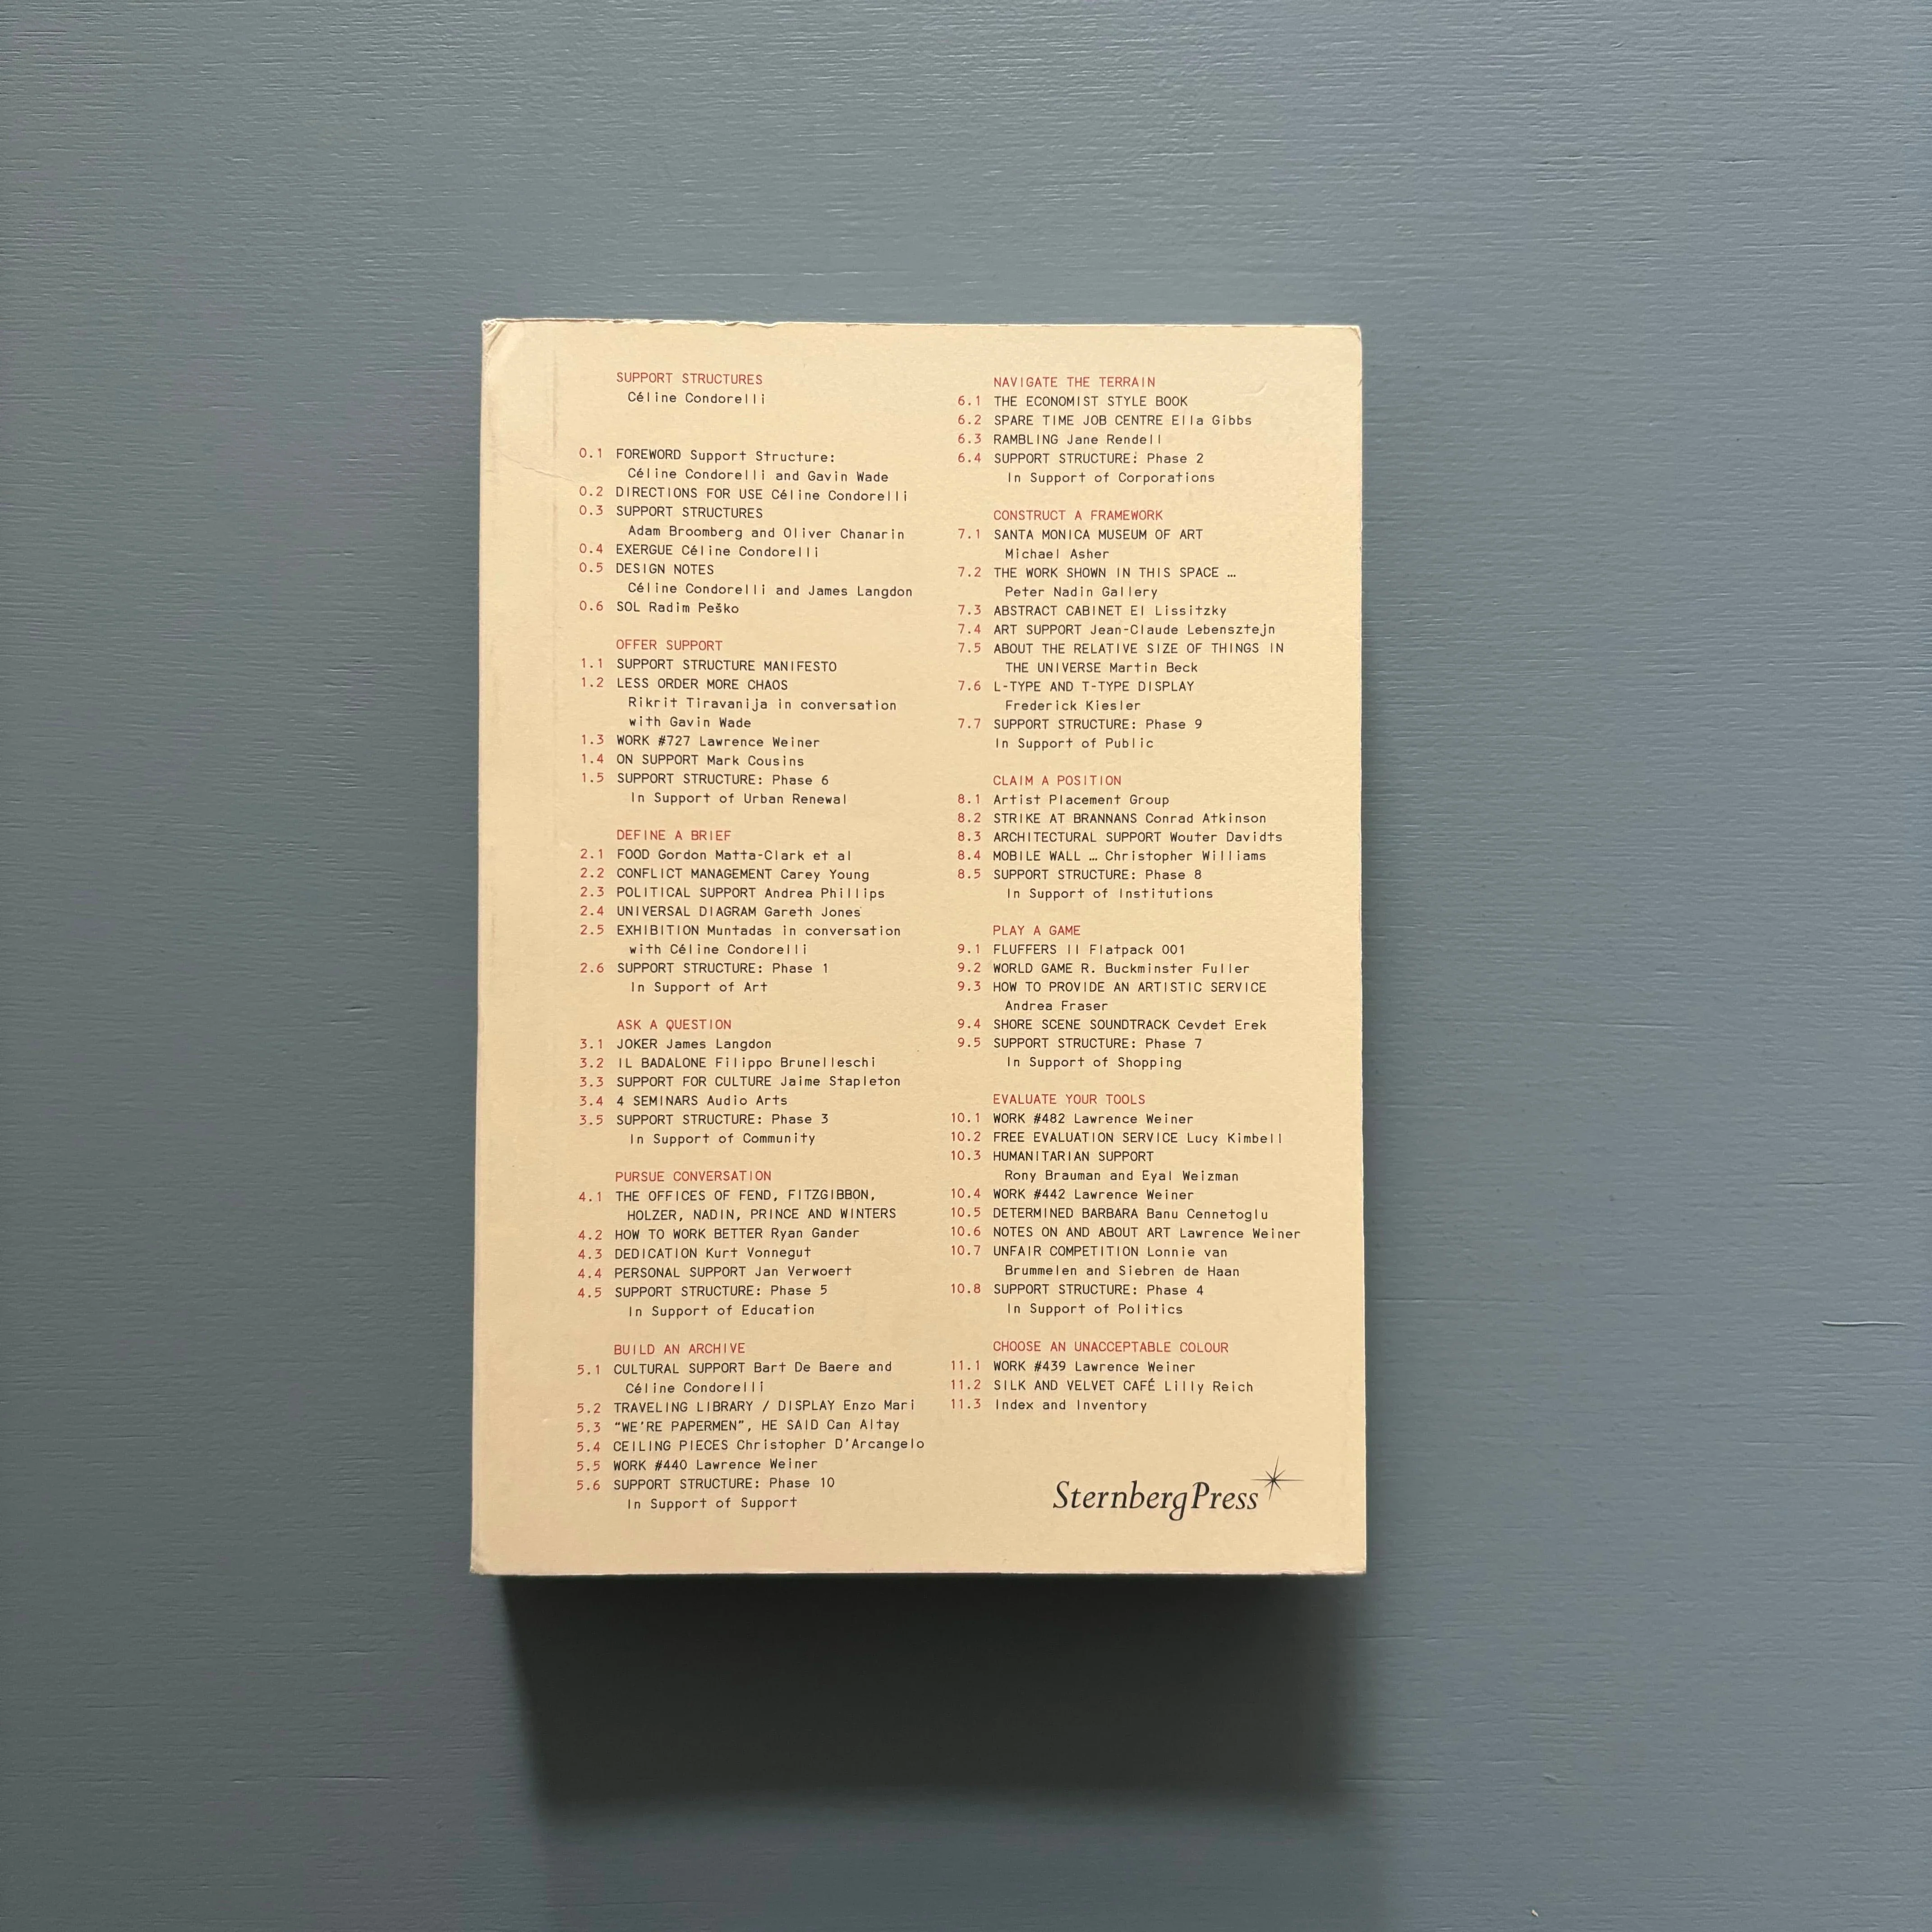 SUPPORT STRUCTURES
Céline Condorelli
0.1 FOREWORD Support Structure:
Céline Condorelli and Gavin Wade
0.2 DIRECTIONS FOR USE Céline Condorelli
0.3 SUPPORT STRUCTURES
Adam Broomberg and Oliver Chanarin
0.4 EXERGUE Céline Condorelli
0.5 DESIGN NOTES
Céline Condorelli and James Langdon
0.6 SOL Radim Peško
OFFER SUPPORT
1.1 SUPPORT STRUCTURE MANIFESTO
1.2 LESS ORDER MORE CHAOS
Rikrit Tiravanija in conversation
with Gavin Wade
1.3 WORK #727 Lawrence Weiner
1.4 ON SUPPORT Mark Cousins
1.5 SUPPORT STRUCTURE: Phase 6
In Support of Urban Renewal
DEFINE A BRIEF
2.1 FOOD Gordon Matta-Clark et al
2.2 CONFLICT MANAGEMENT Carey Young
2.3 POLITICAL SUPPORT Andrea Phillips
2.4 UNIVERSAL DIAGRAM Gareth Jones
2.5 EXHIBITION Muntadas in conversation
with Céline Condorelli
2.6 SUPPORT STRUCTURE: Phase 1
In Support of Art
ASK A QUESTION
3.1 JOKER James Langdon
3.2 IL BADALONE Filippo Brunelleschi
3.3 SUPPORT FOR CULTURE Jaime Stapleton
3.4 4 SEMINARS Audio Arts
3.5 SUPPORT STRUCTURE: Phase 3
In Support of Community
PURSUE CONVERSATION
4.1 THE OFFICES OF FEND, FITZGIBBON,
HOLZER, NADIN, PRINCE AND WINTERS
4.2 HOW TO WORK BETTER Ryan Gander
4.3 DEDICATION Kurt Vonnegut
4.4 PERSONAL SUPPORT Jan Verwoert
4.5 SUPPORT STRUCTURE: Phase 5
In Support of Education
BUILD AN ARCHIVE
5.1 CULTURAL SUPPORT Bart De Baere and
Céline Condorelli
5.2 TRAVELING LIBRARY / DISPLAY Enzo Mari
5.3 “WE'RE PAPERMEN”, HE SAID Can Altay
5.4 CEILING PIECES Christopher D'Arcangelo
5.5 WORK #440 Lawrence Weiner
5.6 SUPPORT STRUCTURE: Phase 10
In Support of Support
NAVIGATE THE TERRAIN
6.1 THE ECONOMIST STYLE BOOK
6.2 SPARE TIME JOB CENTRE Ella Gibbs
6.3 RAMBLING Jane Rendell
6.4 SUPPORT STRUCTURE: Phase 2
In Support of Corporations
CONSTRUCT A FRAMEWORK
7.1 SANTA MONICA MUSEUM OF ART
Michael Asher
7.2 THE WORK SHOWN IN THIS SPACE …
Peter Nadin Gallery
7.3 ABSTRACT CABINET El Lissitzky
7.4 ART SUPPORT Jean-Claude Lebensztejn
7.5 ABOUT THE RELATIVE SIZE OF THINGS IN
THE UNIVERSE Martin Beck
7.6 L-TYPE AND T-TYPE DISPLAY
Frederick Kiesler
7.7 SUPPORT STRUCTURE: Phase 9
In Support of Public
CLAIM A POSITION
8.1 Artist Placement Group
8.2 STRIKE AT BRANNANS Conrad Atkinson
8.3 ARCHITECTURAL SUPPORT Wouter Davidts
8.4 MOBILE WALL … Christopher Williams
8.5 SUPPORT STRUCTURE: Phase 8
In Support of Institutions
PLAY A GAME
9.1 FLUFFERS II Flatpack 001
9.2 WORLD GAME R. Buckminster Fuller
9.3 HOW TO PROVIDE AN ARTISTIC SERVICE
Andrea Fraser
9.4 SHORE SCENE SOUNDTRACK Cevdet Erek
9.5 SUPPORT STRUCTURE: Phase 7
In Support of Shopping
EVALUATE YOUR TOOLS
10.1 WORK #482 Lawrence Weiner
10.2 FREE EVALUATION SERVICE Lucy Kimbell
10.3 HUMANITARIAN SUPPORT
Rony Brauman and Eyal Weizman
10.4 WORK #442 Lawrence Weiner
10.5 DETERMINED BARBARA Banu Cennetoglu
10.6 NOTES ON AND ABOUT ART Lawrence Weiner
10.7 UNFAIR COMPETITION Lonnie van
Brummelen and Siebren de Haan
10.8 SUPPORT STRUCTURE: Phase 4
In Support of Politics
CHOOSE AN UNACCEPTABLE COLOUR
11.1 WORK #439 Lawrence Weiner
11.2 SILK AND VELVET CAFÉ Lilly Reich
11.3 Index and Inventory
SternbergPress